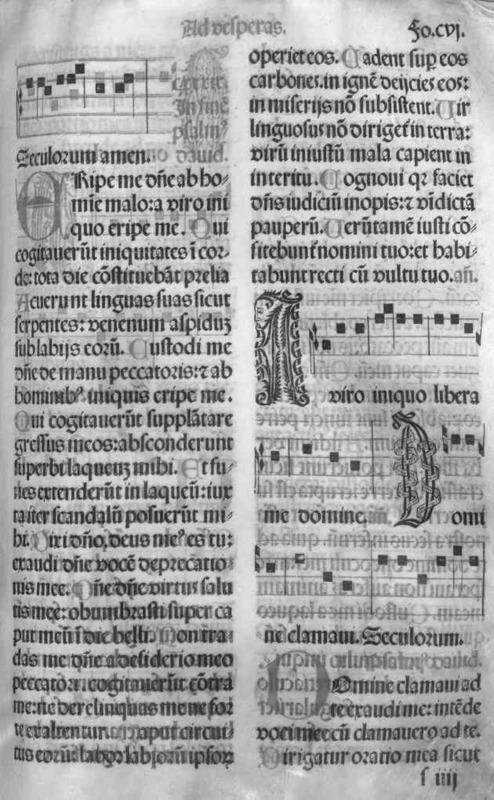 Ad vesperas.
Fo.cvj.
cxxxix.
In finẽ
psalm⁹
Seculorum amen. dauid.
ERipe me dñe ab ho⸗
mine malo: a viro ini
quo eripe me. Qui
cogitauerũt iniquitates ĩ cor⸗
de: tota die cõstituebãt prelia
Acuerunt linguas suas sicut
serpentes: venenum aspiduȝ
sub labijs eorũ. Custodi me
dñe de manu peccatoris: ⁊ ab
hominibꝰ iniquis eripe me.
Qui cogitauerũt supplãtare
gressus meos: absconderunt
superbi laqueuȝ mihi. Et fu⸗
nes extenderũt in laqueũ: iux
ta iter scandalũ posuerũt mi⸗
hi. Dixi dño, deus meꝰ es tu:
exaudi dñe vocẽ deprecatio
nis mee. Dñe dñe virtus salu
tis mee: obumbrasti super ca
put meũ ĩ die belli. Non tra⸗
das me dñe a desiderio meo
peccatori: cogitauerũt cõtra
me: ne derelinquas me ne for
te exaltentur. Caput circui⸗
tus eorũ: labor labiorũ ipsoꝝ
operiet eos. Cadent suꝑ eos
carbones. in ignẽ deijcies eos:
in miserijs nõ subsistent. Uir
linguosus nõ dirigeť in terra:
virũ iniustũ mala capient in
interitu. Cognoui qꝛ faciet
dñs iudiciũ inopis: ⁊ vĩdictã
pauperũ. Uerũtamẽ iusti cõ⸗
fitebunť nomini tuo: et habi⸗
tabunt recti cũ vultu tuo. añ.
A viro iniquo libera
me domine. añ. Domi
ne clamaui. Seculorum.
DOmine clamaui ad
te exaudi me: intẽde
voci mee cũ clamauero ad te.
Dirigatur oratio mea sicut
s iiij